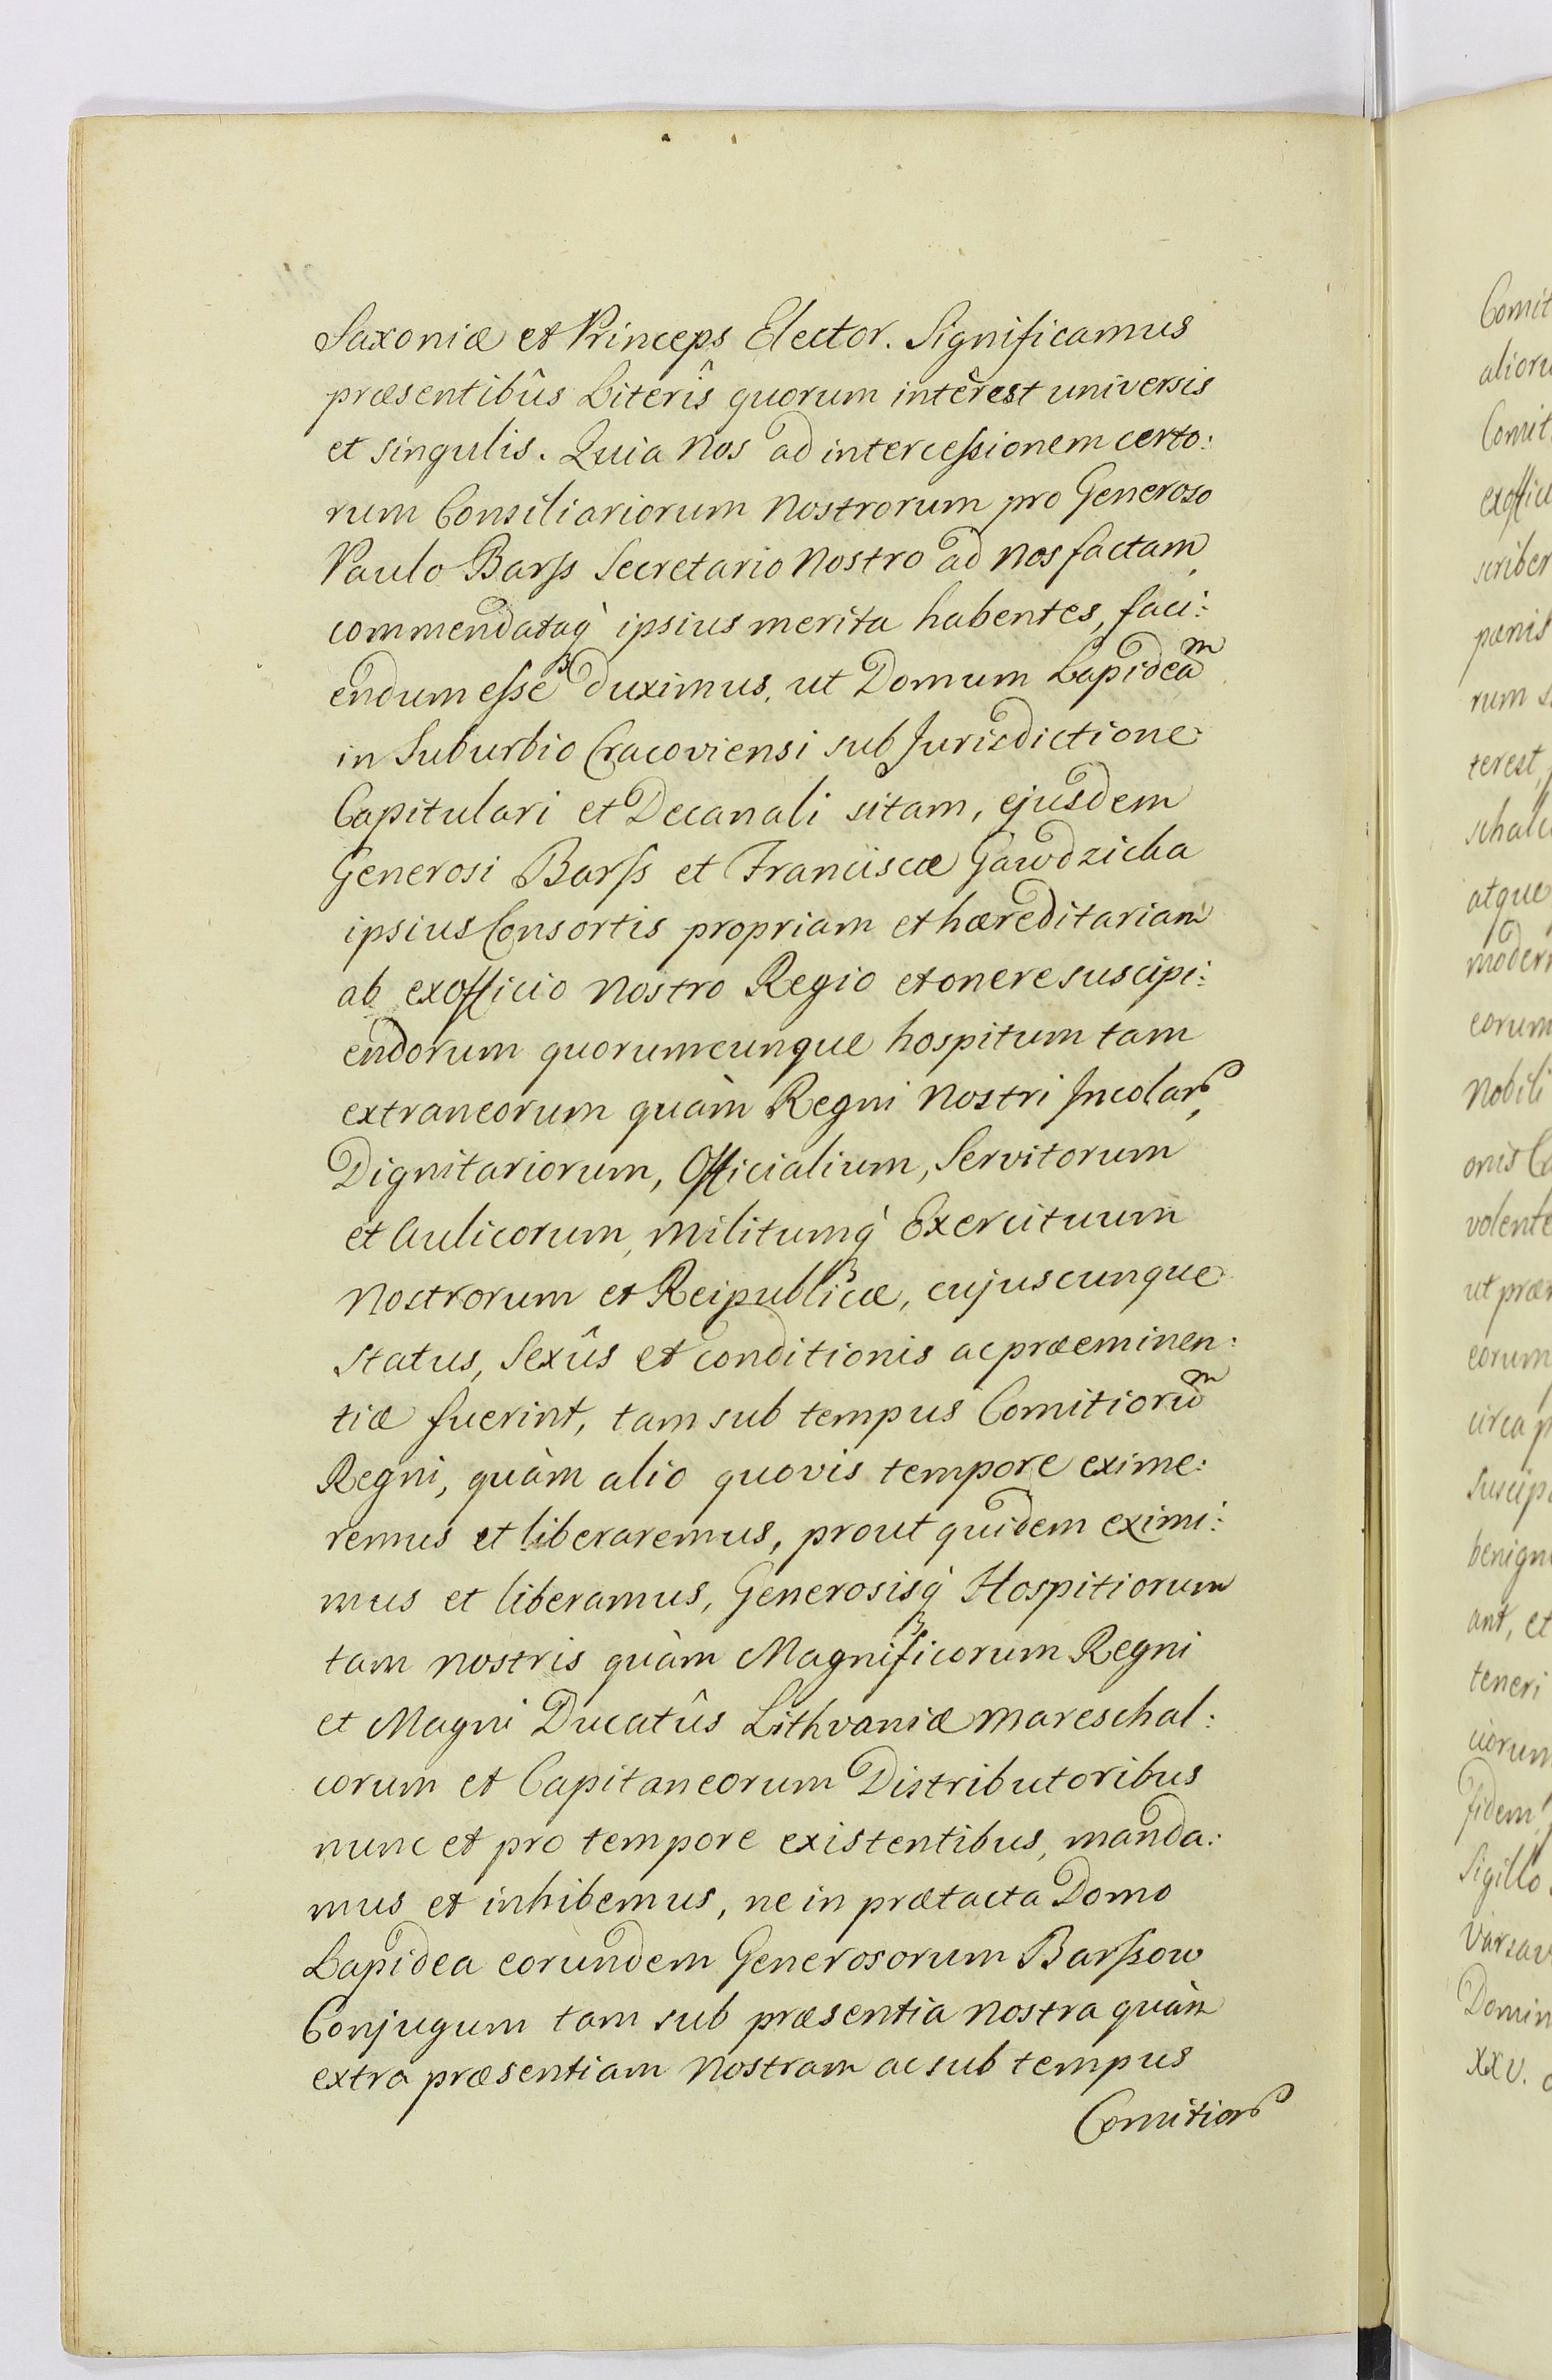 Saxoniæ et Princeps Elector. Significamus
præsentibûs Literîs quorum intêrest universis
et singulis. Quia Nos ad intercessionem certo:
rum Consiliariorum Nostrorum pro Generoso
Paulo Barss Secretario Nostro ad nos factam,
commendataq̀ ipsius merita habentes, faci:
endum esse duximus, ut Domum Lapideam
in Suburbio Cracoviensi sub Jurisdictione
Capitulari et Decanali sitam, ejusdem
Generosi Barss et Franciscæ Gawdzicka
ipsius Consortis propriam et hæreditariam
ab exofficio Nostro Regio et onere suscipi:
endorum quorumcunque hospitum tam
extraneorum quàm Regni Nostri Incolaꝝ,
Dignitariorum, Officialium, Servitorum
et Aulicorum, Militumq̀ Exercituum
Nostrorum et Reipublicæ, cujuscunque
Status, Sexûs et conditionis ac præeminen:
tiæ fuerint, tam sub tempus Comitiorum
Regni, quàm alio quovis tempore exime:
remus et liberaremus, prout quidem eximi:
mus et liberamus, Generosisq̀ Hospitiorum
tam nostris quàm Magnificorum Regni
et Magni Ducatûs Lithvaniæ Mareschal:
corum et Capitaneorum Distributoribus
nunc et pro tempore existentibus, manda:
mus et inhibemus, ne in prætacta Domo
Lapidea eorundem Generosorum Barssow
Conjugum tam sub præsentia nostra quàm
extra præsentiam Nostram ac sub tempus
Comitioꝝ
Comit
Comit
rum
terest,
atque
modern
eorum
Nobili
volente
ut præ
eorum
circa
benign
ant, et
teneri
fidem
Sigillo
Varsav
Domin
XXV.